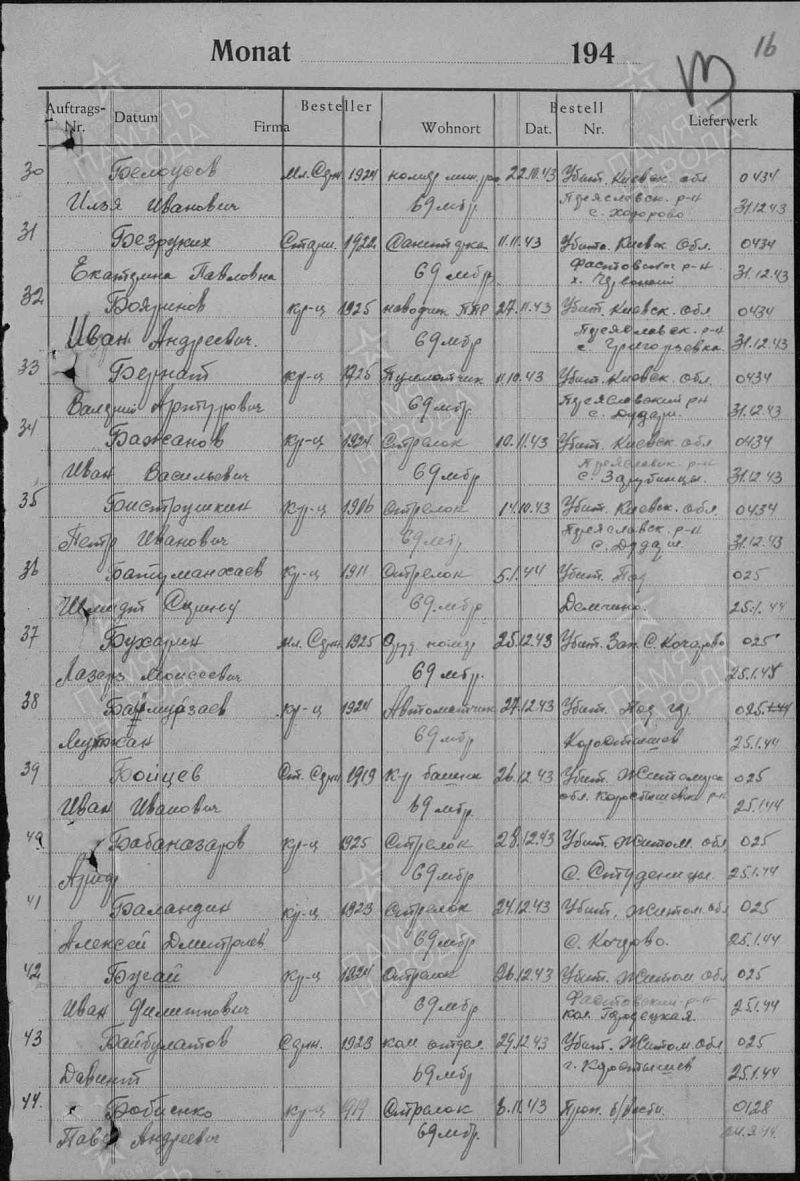 16
Monat 194
Auftrags-Nr. Datum Besteller Firma Wohnort Bestell Dat. Nr. Lieferwerk
30 Белоусов мл. Сзн. 1924 22.10.43 Убит. Киевск. обл 0434
Илья Иванович 69 мбр. Пзеяславск. р-н
с. Ходорово 31.12.43
31 Безруких Старш. 1922 11.11.43 Убита. Киевск. Обл. 0434
Екатерина Павловна 69 мбр. Фастовского р-н
х. Червоный 31.12.43
32 Бояринов кр-ц 1925 наводчик ПТР 27.11.43 Убит. Киевск. Обл 0434
Иван Андреевич. 69 мбр Пзеяславск. р-н
с. Григорьевка 31.12.43
33 Бернат кр-ц 1925 Пулеметчик 11.10.43 Убит. Киевск. обл. 0434
Валерий Артурович 69 мбр. Пзеяславский рн
с. Дудари. 31.12.43
34 Бажанов кр-ц 1924 Стрелок 10.11.43 Убит. Киевск. обл 0434
Иван Васильевич 69 мбр р-н
с. Зарубинцы. 31.12.43
35 Биструшкин кр-ц 1906 Стрелок 14.10.43 Убит. Киевск. обл. 0434
Петр Иванович 69 мбр Пзеяславск. р-н
с. Дудари. 31.12.43
36 кр-ц 1911 Стрелок 5.1.44 Убит. Под 025
69. мбр. Демчино. 25.1.44
37 Бухарин мл. Сзн. 1925 Орд. номер 25.12.43 Убит. Зап. С. Кочерово 025
Лазарь Моисеевич 69 мбр. 25.1.44
38 Баймурзаев кр-ц 1924 Автоматчик 27.12.43 Убит. Под гор. 025
69 мбр Коростышев 25.1.44
39 Бойцев Ст. Сзн. 1919 26.12.43 Убит. Житомирск 025
Иван Иванович 69 мбр. обл. Коростышевск р-н 25.1.44
40 Бабаназаров кр-ц 1925 Стрелок 28.12.43 Убит. Житом. обл 025
69 мбр с. Студеницы. 25.1.44
41 Баландин кр-ц 1923 Стрелок 24.12.43 Убит. Житом. обл 025
Алексей Дмитриев 69 мбр с. Кочерово. 25.1.44
42 Бугай кр-ц 1924 Стрелок 26.12.43 Убит. Житом. обл 025
Иван Филиппович 69 мбр Фастовский р-н
кол. Городецкая. 25.1.44
43 Байбулатов Сзн. 1923 ком. отдел. 29.12.43 Убит. Житом. обл 025
Давлет 69 мбр г. Коростышев 25.1.44
44. Бобиенко кр-ц 1919 Стрелок 8.11.43 Проп. б/вести. 0128
Андреевич 69 мбр.